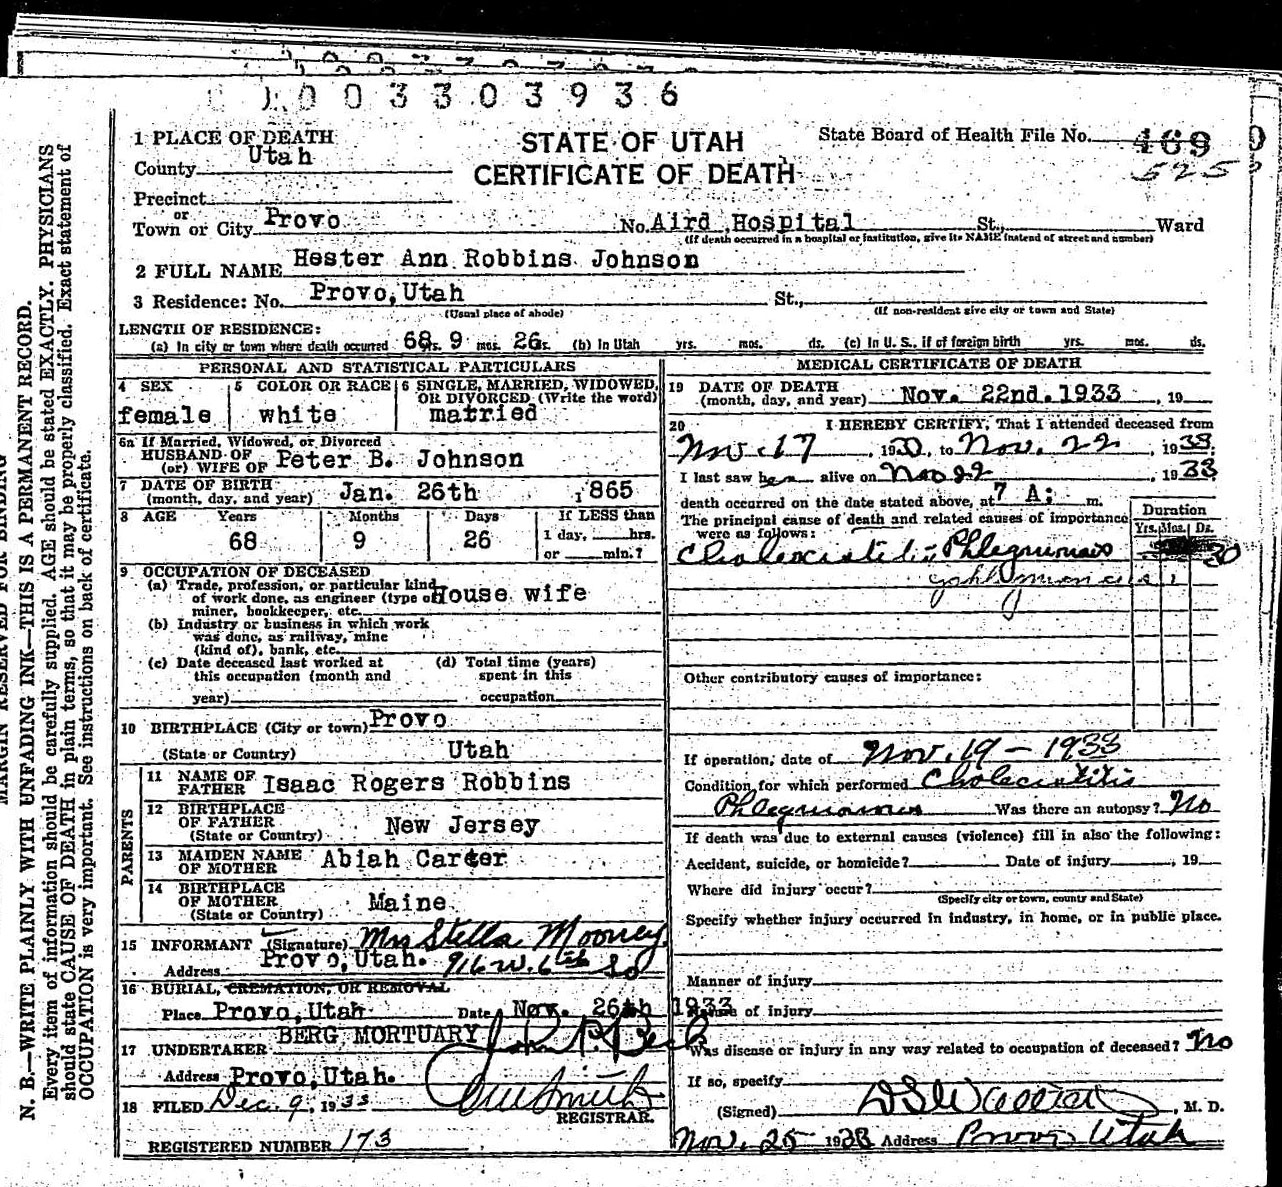 0 0 3 3 0 3 9 3 6
1 PLACE OF DEATH
County Utah
Precinct
or
Town or City Provo
STATE OF UTAH
CERTIFICATE OF DEATH
State Board of Health File No. 469
No. Aird Hospital St., Ward
(If death occurred in a hospital or institution, give its NAME instead of street and number)
2 FULL NAME Hester Ann Robbins Johnson
3 Residence: No. Provo, Utah St.,
(Usual place of abode) (If non-resident give city or town and State)
LENGTH OF RESIDENCE:
(a) In city or town where death occurred 68 yrs. 9 mos. 26 ds. (b) In Utah yrs. mos. ds. (c) In U. S., if of foreign birth yrs. mos. ds.
PERSONAL AND STATISTICAL PARTICULARS
4 SEX female
5 COLOR OR RACE white
6 SINGLE, MARRIED, WIDOWED, OR DIVORCED (Write the word) married
6a If Married, Widowed, or Divorced
HUSBAND OF
(or) WIFE OF Peter B. Johnson
7 DATE OF BIRTH
(month, day, and year) Jan. 26th 1865
8 AGE Years Months Days If LESS than
68 9 26 1 day, hrs.
or min.?
9 OCCUPATION OF DECEASED
(a) Trade, profession, or particular kind
of work done, as engineer (type of House wife
miner, bookkeeper, etc.
(b) Industry or business in which work
was done, as railway, mine
(kind of), bank, etc.
(c) Date deceased last worked at
this occupation (month and
year)
(d) Total time (years)
spent in this
occupation
10 BIRTHPLACE (City or town) Provo
(State or Country) Utah
PARENTS
11 NAME OF
FATHER Isaac Rogers Robbins
12 BIRTHPLACE
OF FATHER New Jersey
(State or Country)
13 MAIDEN NAME
OF MOTHER Abiah Carter
14 BIRTHPLACE
OF MOTHER Maine
(State or Country)
15 INFORMANT (Signature) Mrs Stella Mooney
Address Provo, Utah. 916 W. 6th So
16 BURIAL, CREMATION, OR REMOVAL
Place Provo, Utah Date Nov. 26th 1933
17 UNDERTAKER BERG MORTUARY
Address Provo, Utah.
18 FILED Dec. 9, 1933
REGISTRAR.
REGISTERED NUMBER 173
MEDICAL CERTIFICATE OF DEATH
19 DATE OF DEATH
(month, day, and year) Nov. 22nd. 1933, 19
20 I HEREBY CERTIFY, That I attended deceased from
Nov. 17, 1933, to Nov. 22, 1933
I last saw her alive on Nov 22, 1933
death occurred on the date stated above, at 7 A: m.
The principal cause of death and related causes of importance
were as follows:
Duration
Yrs. Mos. Ds.
Cholecistitis Phlegmonus
Other contributory causes of importance:
If operation, date of Nov. 19 - 1933
Condition for which performed Cholecistitis
Phlegmonus Was there an autopsy? No
If death was due to external causes (violence) fill in also the following:
Accident, suicide, or homicide? Date of injury, 19
Where did injury occur?
(Specify city or town, county and State)
Specify whether injury occurred in industry, in home, or in public place.
Manner of injury
Nature of injury
Was disease or injury in any way related to occupation of deceased? No
If so, specify
(Signed) , M. D.
Nov. 25 1933 Address Provo Utah
MARGIN RESERVED FOR BINDING
N. B.—WRITE PLAINLY WITH UNFADING INK—THIS IS A PERMANENT RECORD.
Every item of information should be carefully supplied. AGE should be stated EXACTLY. PHYSICIANS
should state CAUSE OF DEATH in plain terms, so that it may be properly classified. Exact statement of
OCCUPATION is very important. See instructions on back of certificate.